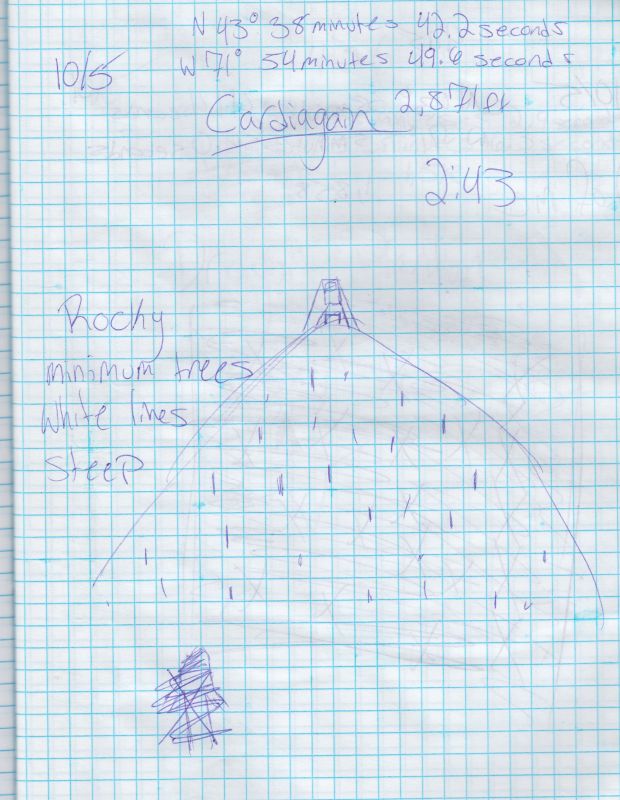 N 43° 38 minutes 42.2 seconds
10/5
W 71° 54 minutes 49.6 seconds
Cardiagain 2,871 ft
2:43
Rocky
minimum trees
white lines
steep